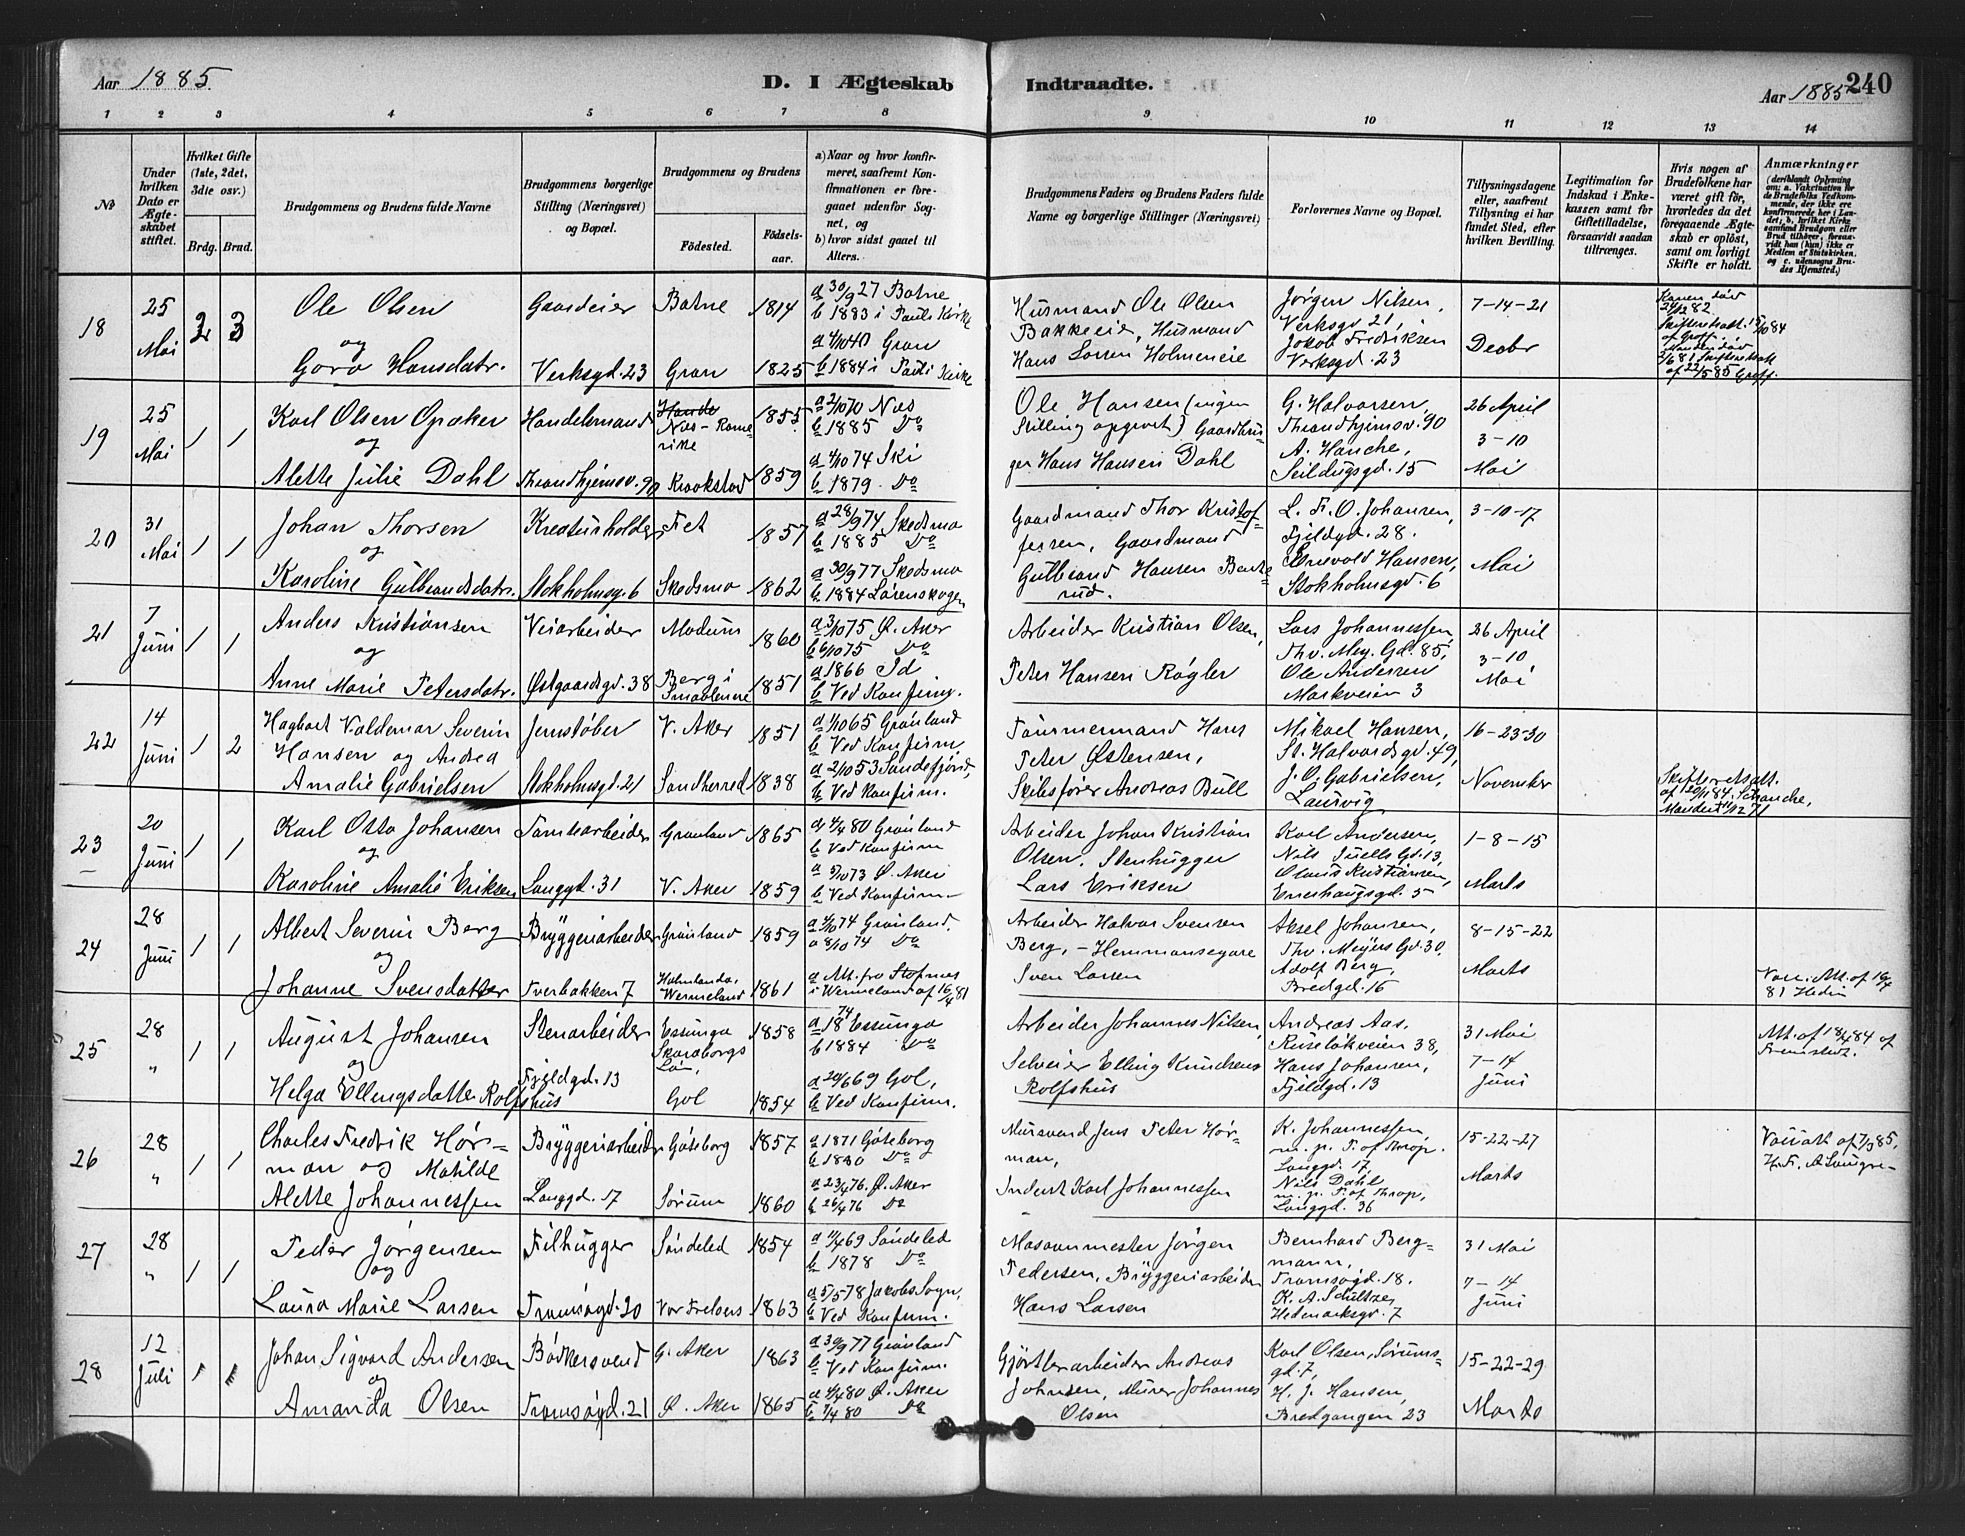 Aar 1885.
D. I Ægteskab Indtraadte.
Aar 1885
240
1 2 3 4 5 6 7 8 9 10 11 12 13 14
No
Under hvilken Dato er Ægteskabet stiftet.
Hvilket Gifte (1ste, 2det, 3die osv.)
Brdg. Brud.
Brudgommens og Brudens fulde Navne
Brudgommens borgerlige Stilling (Næringsvei) og Bopæl.
Brudgommens og Brudens
Födested.
Födselsaar.
a) Naar og hvor konfirmeret, saafremt Konfirmationen er foregaaet udenfor Sognet, og
b) hvor sidst gaaet til Alters.
Brudgommens Faders og Brudens Faders fulde Navne og borgerlige Stillinger (Næringsvei)
Forlovernes Navne og Bopæl.
Tillysningsdagene eller, saafremt Tillysning ei har fundet Sted, efter hvilken Bevilling.
Legitimation for Indskud i Enkekassen samt for Giftetilladelse, forsaavidt saadan tiltrænges.
Hvis nogen af Brudefolkene har været gift för, hvorledes da det foregaaende Ægteskab er oplöst, samt om lovligt Skifte er holdt.
Anmærkninger (deriblandt Oplysning om: a. Vakcination for de Brudefolks Vedkommende, der ikke ere konfirmerede her i Landet; b. hvilket Kirkesamfund Brudgom eller Brud tilhörer, forsaavidt han (hun) ikke er Medlem af Statskirken, og c. udensogns Brudes Hjemsted.)
18 25 Mai 2 3
Ole Olsen
og
Goro Hansdatr.
Gaardeier
Verksgd. 23
Batne 1814
Gran 1825
a 30/9 27 Batne
b 1883 i Pauls Kirke
a 4/10 40 Gran
b 1884 i Pauls Kirke
Husmand Ole Olsen
Bakkeeie, Husmand
Hans Larsen Holmeneie
Jørgen Nilsen,
Verksgd 21,
Jakob Fredriksen
Verksgd. 23
7-14-21
Decbr
Konen død
24/12 82
Skifteretsatt. 15/10 84
af Groff.
Manden død
2/6 81 Skifteretsatt
af 22/5 85 Groff.
19 25 Mai 1 1
Karl Olsen Opaker
og
Alette Julie Dahl
Handelsmand
Throndhjemsv. 90
Næs-Romerike 1855
Kraakstad 1859
a 2/10 70 Næs
b 1885 Do
a 4/10 74 Ski
b 1879 Do
Ole Hansen (ingen
Stilling opgivet) Gaardbruger
Hans Hansen Dahl
G. Halvorsen,
Throndhjemsv. 90
A. Hanche,
Seildugsgd. 15
26 April
3-10
Mai
20 31 Mai 1 1
Johan Thorsen
og
Karoline Gulbrandsdatr.
Kreaturholder
Stokholmsg. 6
Fet 1857
Skedsmo 1862
a 28/9 74 Skedsmo
b 1885 Do
a 30/9 77 Skedsmo
b 1884 Lørenskogen
Gaardmand Thor Kristoffersen,
Gaardmand
Gulbrand Hansen
L. F. O. Johansen,
Fjeldgd. 28.
Enevold Hansen,
Stokholmsgd. 6
3-10-17
Mai
21 7 Juni 1 1
Anders Kristiansen
og
Anne Marie Petersdatr.
Veiarbeider
Østgaardsgd. 38
Modum 1860
Berg i Smaalenene 1851
a 3/10 75 Ø. Aker
b 6/10 75 Do
a 1866 Id
b Ved Konfirm.
Arbeider Kristian Olsen,
Peter Hansen Røgler
Lars Johannessen,
Thv. Mey. Gd. 85,
Ole Andersen
Markveien 3
26 April
3-10,
Mai
22 14 Juni 1 2
Hagbart Valdemar Severin
Hansen og Andrea
Amalie Gabrielsen
Jernstøber
Stokholmsgd. 21
V. Aker 1851
Sandherred 1838
a 1/10 65 Grønland
b Ved Konfirm.
a 2/10 53 Sandefjord,
b Ved Konfirm.
Tømmermand Hans
Peter Østensen,
Skibsfører Andreas Bull
Mikael Hansen,
St. Halvardsgd. 49,
J. O. Gabrielsen,
Laurvig
16-23-30
November
Skifteretsatt.
af 20/11 84. Schanche,
Mand 71
23 20 Juni 1 1
Karl Otto Johansen
og
Karoline Amalie Eriksen
Tomtearbeider
Langgd. 31
Grønland 1865
V. Aker 1859
a 4/4 80 Grønland
b Ved Konfirm
a 5/10 73 Ø. Aker
b Ved Konfirm.
Arbeider Johan Kristian
Olsen. Stenhugger
Lars Eriksen
Karl Andersen,
Nils Juells Gd. 13,
Olaus Kristiansen,
Enerhaugsgd. 5
1-8-15
Marts
24 28 Juni 1 1
Albert Severin Berg
og
Johanne Svensdatter
Bryggeriarbeider
Tverbakken 7
Grønland 1859
Wermeland 1861
a 4/10 74 Grønland,
a 8/10 74 Do
a Att. fra Stofnæs
i Wermeland af 16/4 81
Arbeider Halvor Svensen
Berg, - Hemmansegare
Sven Larsen
Aksel Johansen,
Thv. Meyers Gd. 30,
Adolf Berg,
Bredgd. 16
8-15-22
Marts
Vacc. Att. af 16/4
81 Hedin
25 28 " 1 1
August Johansen
og
Helga Ellengsdatter Rolfshus
Stenarbeider
Fjeldgd. 13
Essunga Skaraborgs Län, 1858
Gol 1854
a 1874 Essunga
b 1884 Do
a 20/6 69 Gol,
b Ved Konfirm.
Arbeider Johannes Nilsen,
Selveier Elling Knudsen
Rolfshus
Andreas Aas,
Ruseløkveien 38,
Hans Johansen,
Fjeldgd. 13
31 Mai
7-14
Juni
Att. af 18/4 84 af
26 28 " 1 1
Charles Fredrik Hörman
og Matilde
Alette Johannessen
Bryggeriarbeider
Langgd. 17
Göteborg 1857
Sørum 1860
a 1871 Göteborg
b 1880 Do
a 23/4 76. Ø. Aker
b 26/4 76 Do
Mursvend Jens Peter Hörman,
Inderst Karl Johannessen
K. Johannessen,
m. p. F. af Throp.
Langgd. 17,
Nils Dahl
m. p. F. af Throp,
Langgd. 36
15-22-27
Marts
27 28 " 1 1
Peder Jørgensen
og
Laura Marie Larsen
Filhugger
Tromsøgd. 20
Søndeled 1854
Vor Frelsers 1863
a 11/4 69 Søndeled
b 1878 Do
a 5/5 78 Jakobs Sogn,
b Ved Konfirm.
Masovnmester Jørgen
Pedersen, Bryggeriarbeider
Hans Larsen
Bernhard Bergmann,
Tromsøgd. 18.
K. A. Schultze,
Hedemarksgd. 7
31 Mai
7-14
Juni
28 12 Juli 1 1
Johan Sigvard Andersen
og
Amanda Olsen
Bødkersvend
Tromsøgd. 21
G. Aker 1863
Ø. Aker 1865
a 30/9 77 Grønland
b Ved Konfirm.
a 4/4 80 Ø. Aker
b 7/4 80 Do
Gjørtlerarbeider Andreas
Johnsen, Murer Johannes
Olsen
Karl Olsen, Sørumsgd. 7,
H. J. Hansen,
Bredgangen 23
15-22-29
Marts